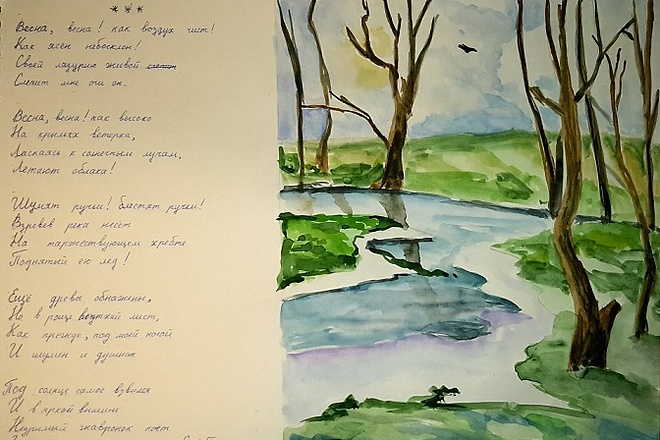 ***
Весна, весна! как воздух чист!
Как ясен небосклон!
Своей лазурию живой
Слепит мне очи он.
Весна, весна! как высоко
На крыльях ветерка,
Ласкаясь к солнечным лучам,
Летают облака!
Шумят ручьи! блестят ручьи!
Взревев река несет
На торжествующем хребте
Поднятый ею лед!
Ещё древа обнажены,
Но в роще ветхий лист,
Как прежде, под моей ногой
И шумен и душист
Под солнце самое взвился
И в яркой вышине
Незримый жавронок поет